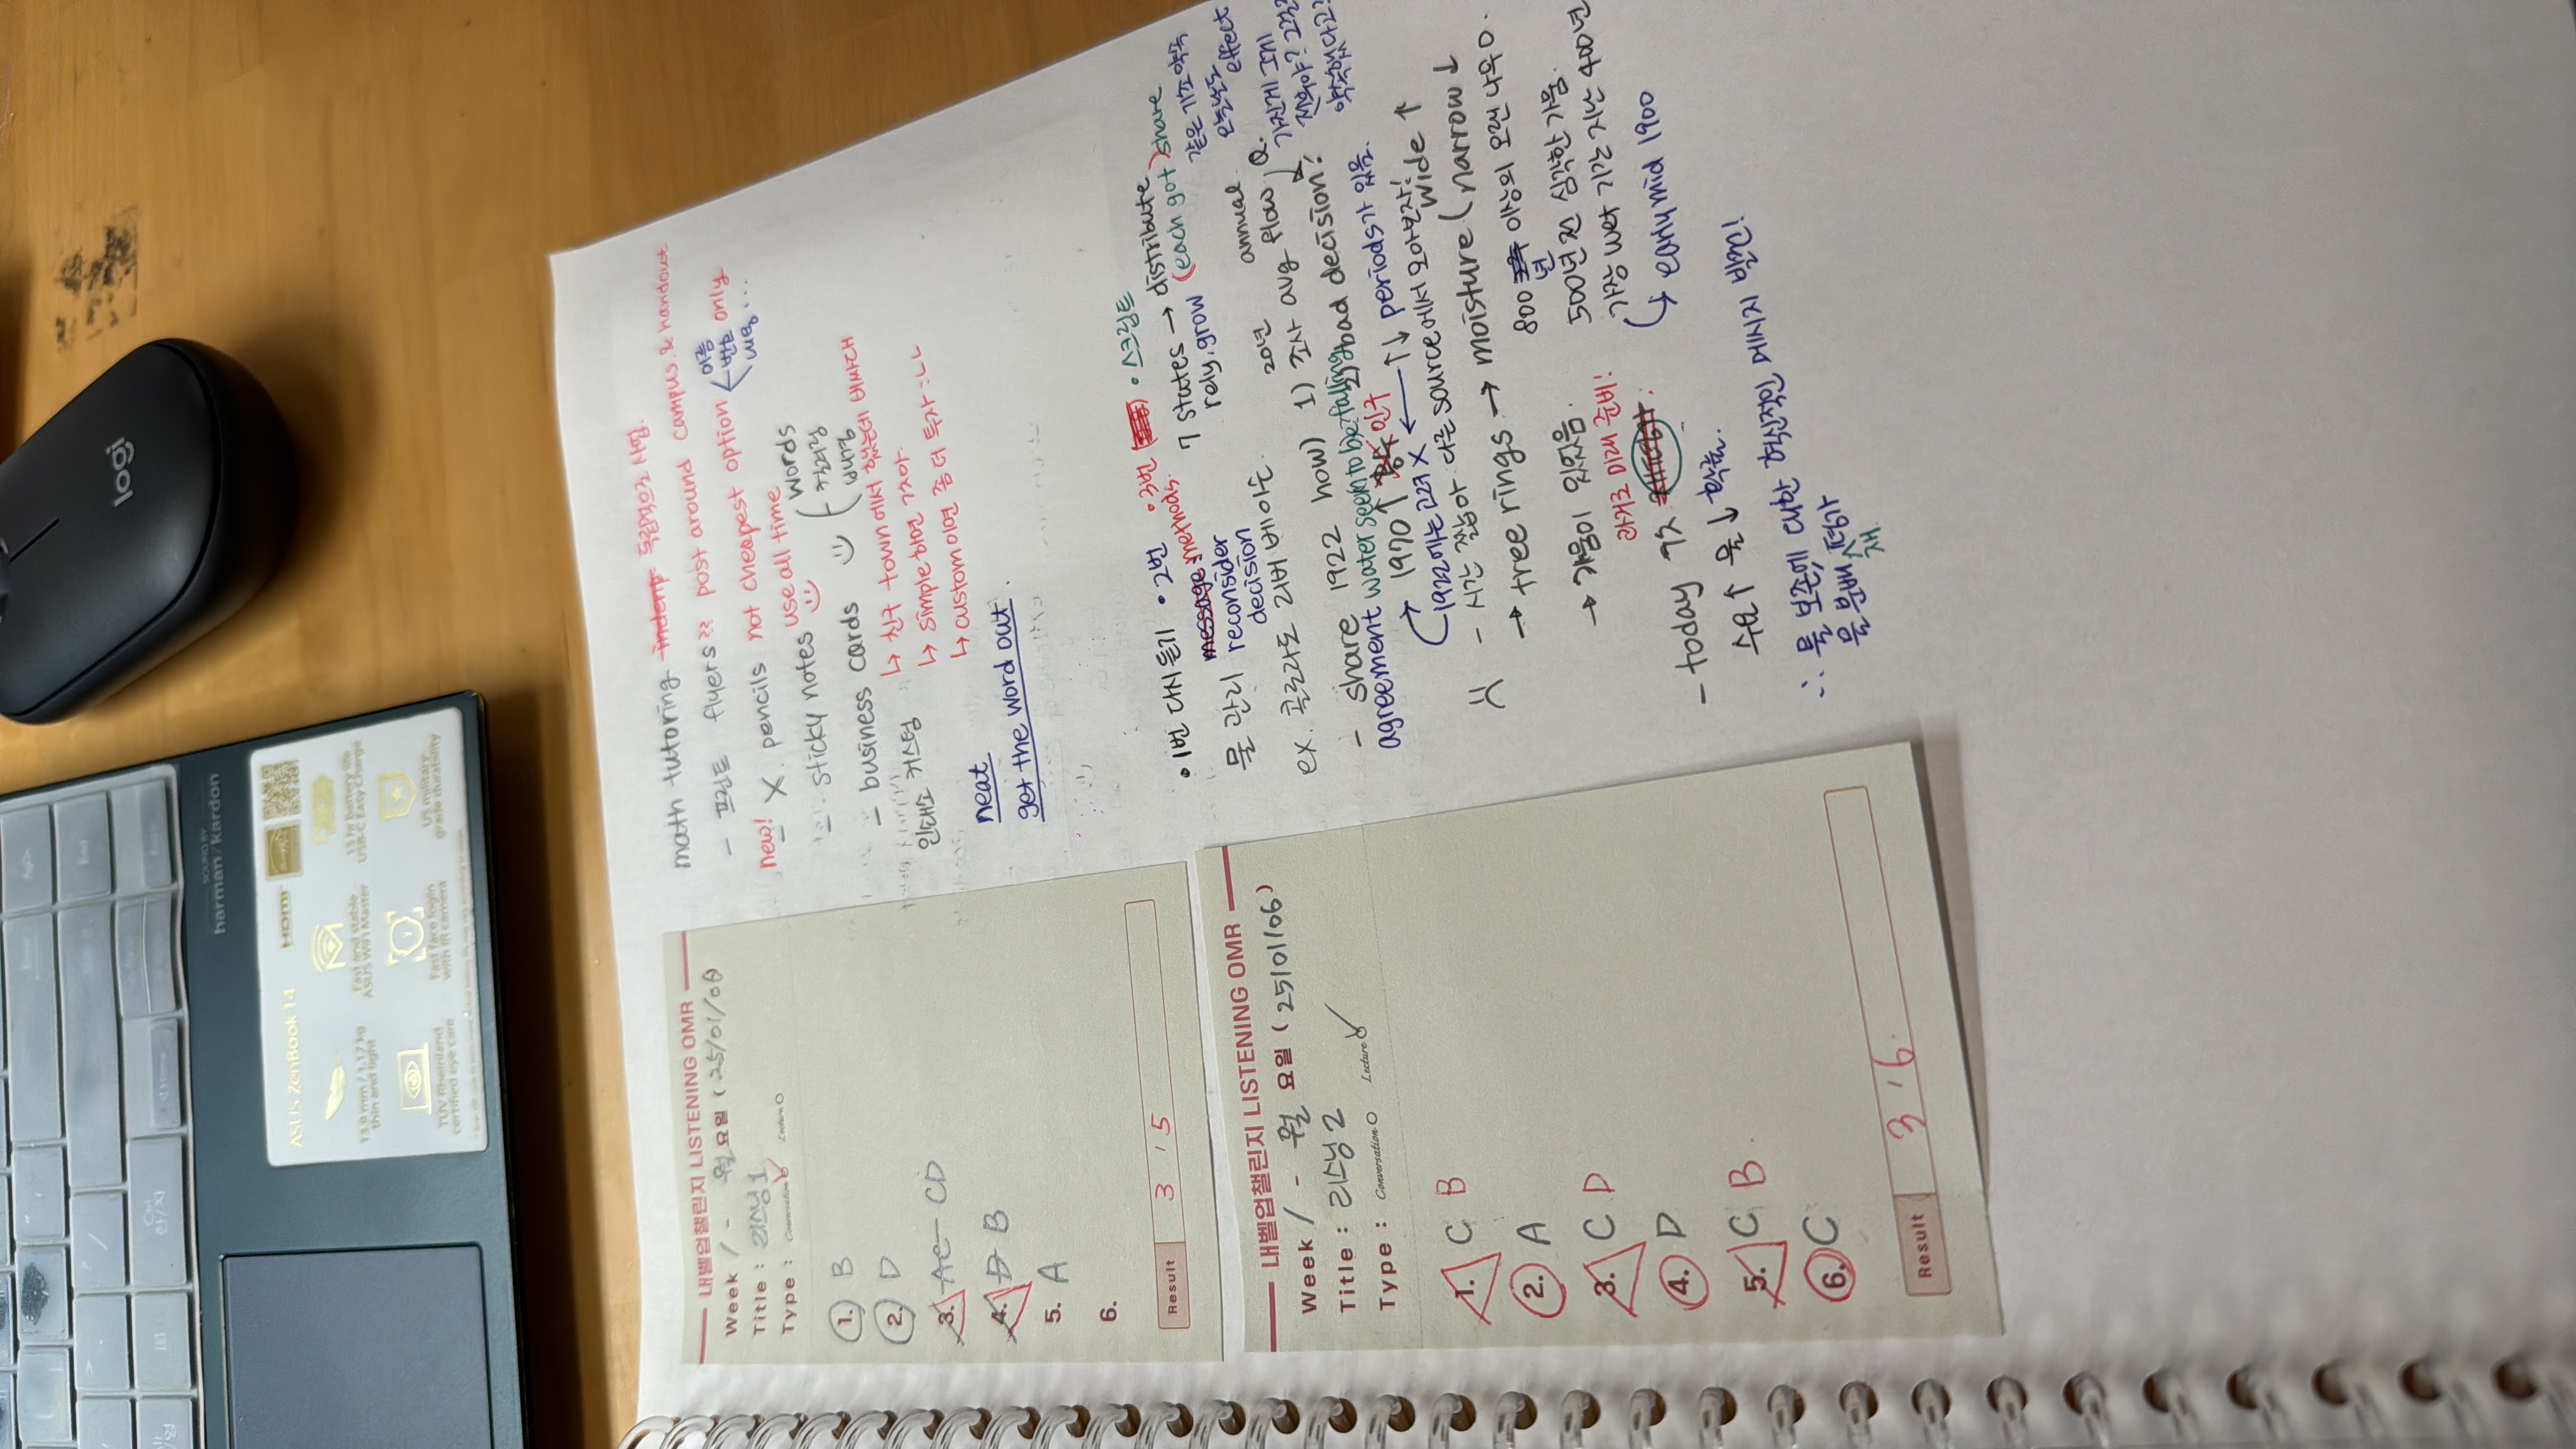 logi
SOUND BY
harman/kardon
ASUS ZenBook 14
HDMI
13.9 mm / 1.17 kg
thin and light
Fast and stable
ASUS WiFi Master
15 hr battery life
USB-C Easy Charge
TÜV Rheinland
certified eye care
Fast face login
with IR camera
US military-
grade durability
내벨업챌린지 LISTENING OMR
Week / - 월 요일 ( 25/01/06
Title : 리스닝 1
Type : Conversation Lecture
1. B
2. D
3. AC CD
4. D B
5. A
6.
Result 3 / 5
math tutoring indep 독립적으로 사업.
- 프린트 flyers?? post around campus & handout
new! X pencils not cheapest option 이름 번호 only
use all time
- sticky notes words
- business cards
↳ 친구 town에서 했는데 비싸대
↳ simple하면 괜찮아.
↳ custom이면 좀 더 투자:ㄴㄴ
neat
get the word out.
내벨업챌린지 LISTENING OMR
Week / - 월 요일 ( 25/01/06)
Title : 리스닝 2
Type : Conversation Lecture
1. C B
2. A
3. C D
4. D
5. C B
6. C
Result 3 / 6.
• 1번 다시 듣기 • 2번 • 3번 • 스크립트
message methods
물 관리 reconsider decision
7 states → distribute
rely, grow (each got) share
같은 기초 약속
effect
ex. 콜로라도 리버 베이슨
- share 1922 how) 1) 조사 avg flow, Q.
20년 annual
agreement water seem to be falling 2) bad decision!
1970 ↑ 인구 ↑↓ periods가 있음.
1922에는 고려 X
- 시간 짧아 다른 source에서 모아보자! wide ↑
→ tree rings → moisture (narrow ↓
800년 이상의 오랜 나무 O.
→ 가뭄이 있었음. 500년 전 심각한 가뭄.
가장 wet 기간 지난 400년
early mid 1900
과거로 미래 준비!
- today
수요 ↑ 물 ↓ 부족.
∴ 물 보존에 대한 혁신적인 메시지 발전!
물 분배 재평가